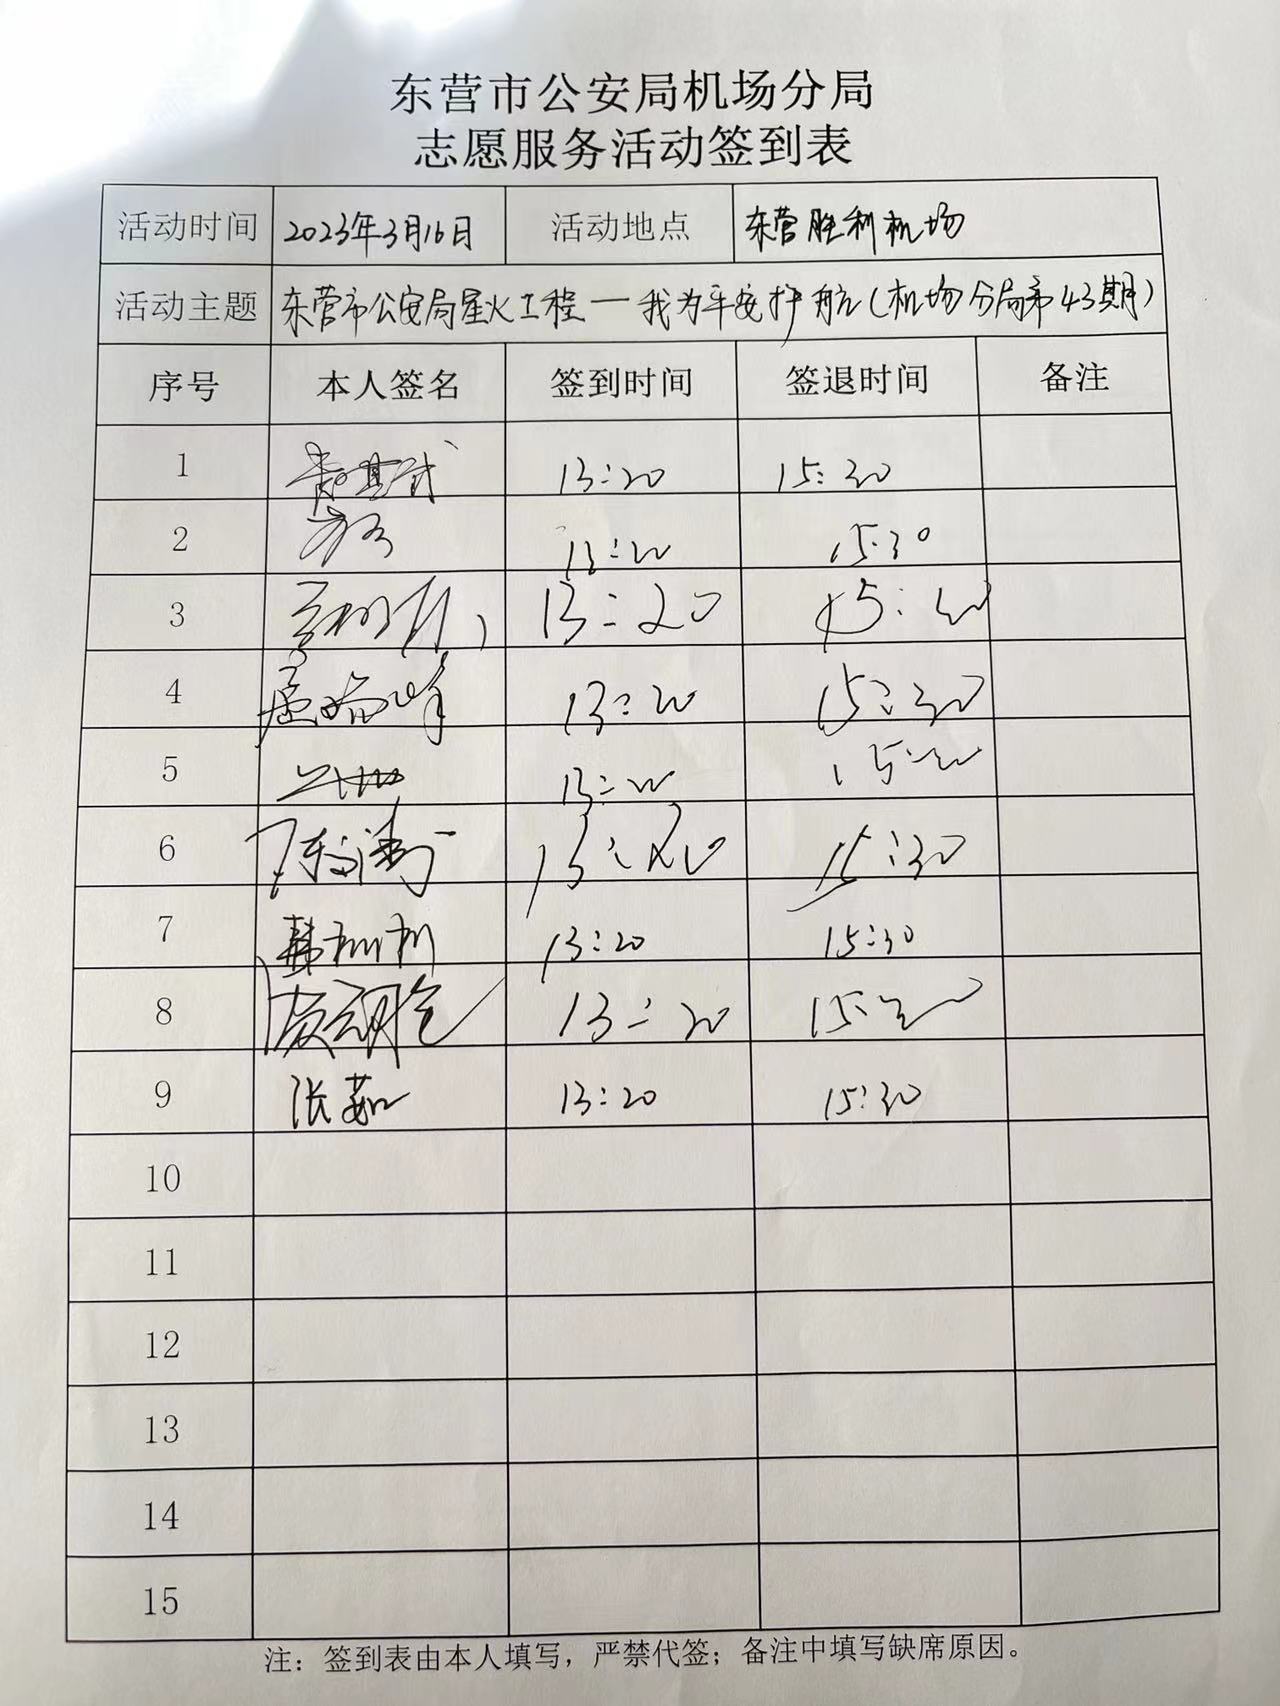 东营市公安局机场分局
志愿服务活动签到表
活动时间 2023年3月16日 活动地点 东营胜利机场
活动主题 东营市公安局星火工程—我为平安护航(机场分局第43期)
序号 本人签名 签到时间 签退时间 备注
1 13:20 15:30
2 13:20 15:30
3 13:20 15:30
4 13:20 15:30
5 13:20 15:30
6 陈涛 13:20 15:30
7 韩彬彬 13:20 15:30
8 13:20 15:30
9 张茹 13:20 15:30
10
11
12
13
14
15
注：签到表由本人填写，严禁代签；备注中填写缺席原因。